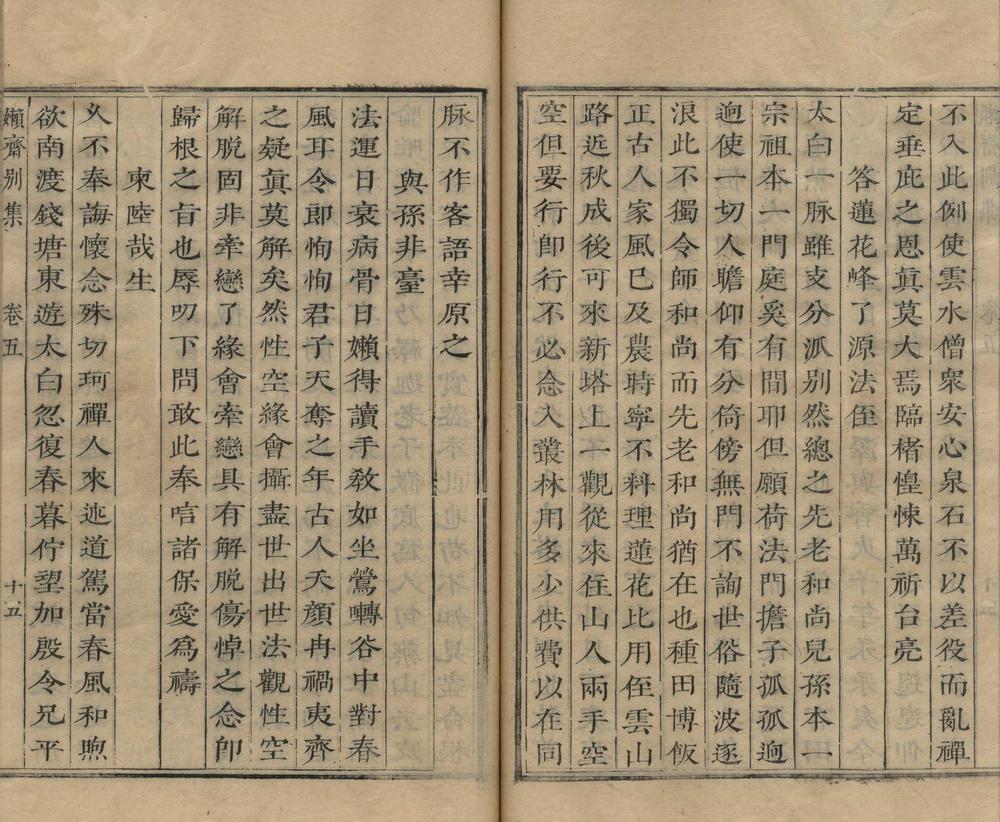 不入此例使雲水僧衆安心泉石不以差役而亂禪
定垂庇之恩眞莫大焉臨楮惶悚萬祈台亮
答蓮花峰了源法侄
太白一脉雖支分派别然總之先老和尚兒孫本一
宗祖本一門庭奚有間耶但願荷法門擔子孤孤迥
迥使一切人瞻仰有分倚傍無門不詢世俗隨波逐
浪此不獨令師和尚而先老和尚猶在也種田博飯
正古人家風巳及農時寧不料理蓮花比用侄雲山
路近秋成後可來新塔上一觀從來住山人兩手空
空但要行卽行不必念入叢林用多少供費以在同
脉不作客語幸原之
與孫非臺
法運日衰病骨日嬾得讀手教如坐鶯囀谷中對春
風耳令郎恂恂君子天奪之年古人夭顔冉禍夷齊
之疑眞莫解矣然性空緣會攝盡世出世法觀性空
解脱固非牽戀了緣會牽戀具有解脱傷悼之念卽
歸根之旨也辱叨下問敢此奉唁諸保愛爲禱
柬陸哉生
乆不奉誨懷念殊切珂禪人來迹道駕當春風和煦
欲南渡錢塘東遊太白忽復春暮佇望加殷令兄平
嬾齋别集 卷五 十五